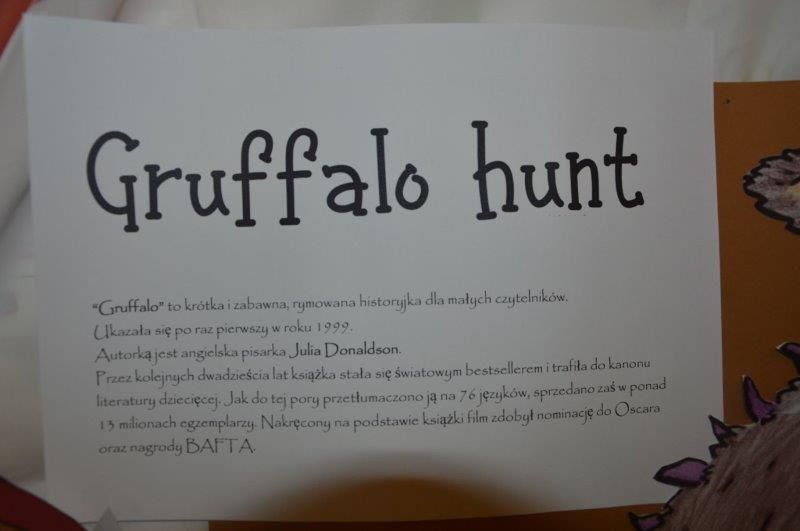 Gruffalo hunt
“Gruffalo” to krótka i zabawna, rymowana historyjka dla małych czytelników.
Ukazała się po raz pierwszy w roku 1999.
Autorką jest angielska pisarka Julia Donaldson.
Przez kolejnych dwadzieścia lat książka stała się światowym bestsellerem i trafiła do kanonu
literatury dziecięcej. Jak do tej pory przetłumaczono ją na 76 języków, sprzedano zaś w ponad
13 milionach egzemplarzy. Nakręcony na podstawie książki film zdobył nominację do Oscara
oraz nagrody BAFTA.